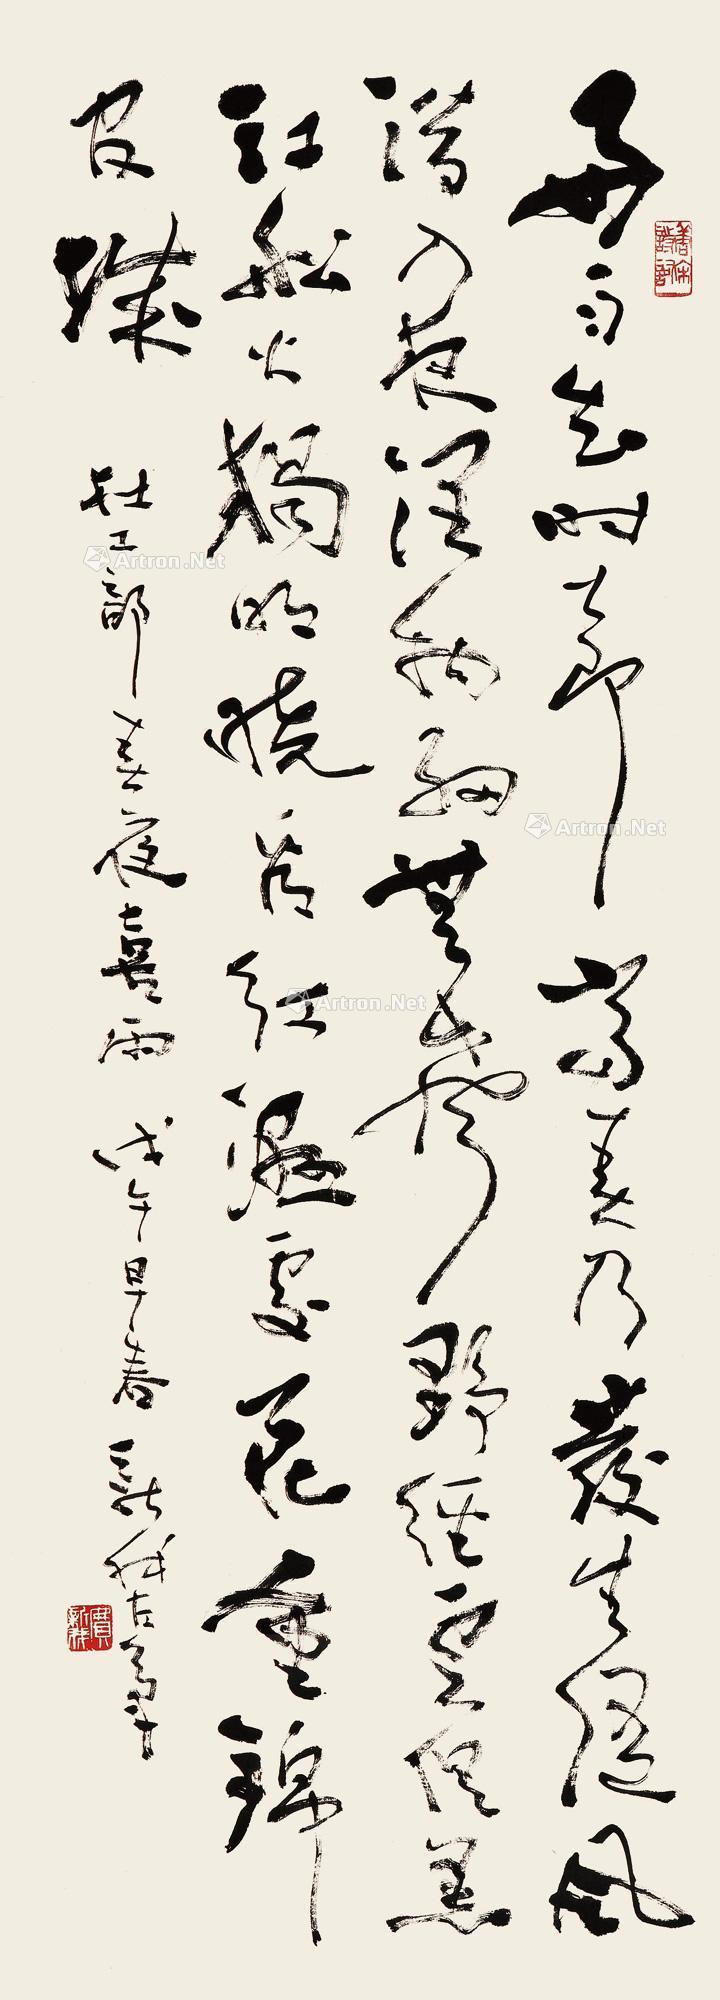 好雨知时节当春乃發生随风
潜入夜润物细無声野径云俱黑
江船火獨明晓看红濕处花重锦
官城
杜工部春夜喜雨 戊午早春 费新我左筆
Artron.Net
Artron.Net
Artron.Net